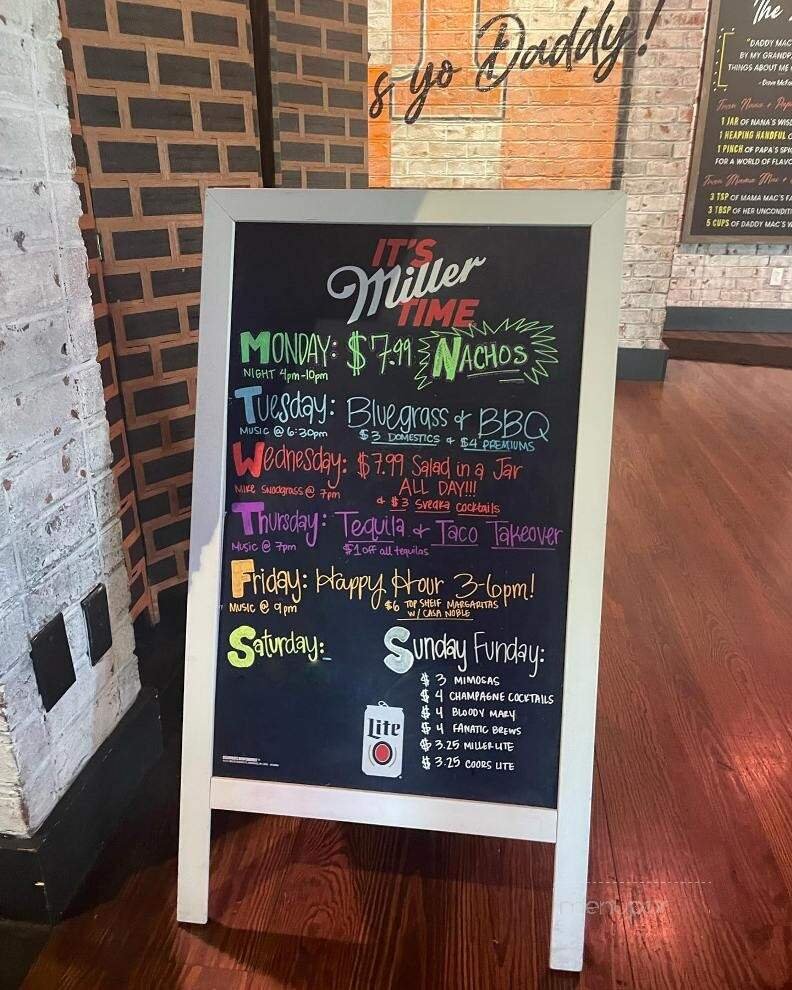 s yo Daddy!
The
"DADDY MAC
BY MY GRANDP
THINGS ABOUT ME
From Nana + Pap
1 JAR OF NANA'S WIS
1 HEAPING HANDFUL O
1 PINCH OF PAPA'S SPI
FOR A WORLD OF FLAVO
From Mama Mac +
3 TSP OF MAMA MAC'S FA
3 TBSP OF HER UNCONDITI
5 CUPS OF DADDY MAC'S W
IT'S
Miller
TIME
MONDAY: $7.99 NACHOS
NIGHT 4pm-10pm
Tuesday: Bluegrass & BBQ
MUSIC @ 6:30pm $3 DOMESTICS & $4 PREMIUMS
Wednesday: $7.99 Salad in a Jar
ALL DAY!!!
MIKE SNODGRASS @ 7pm
& $3 Svedka cocktails
Thursday: Tequila & Taco Takeover
MUSIC @ 7pm $1 off all tequilas
Friday: Happy Hour 3-6pm!
MUSIC @ 9pm $6 TOP SHELF MARGARITAS
W/ CASA NOBLE
Saturday:
Sunday Funday:
$ 3 MIMOSAS
$ 4 CHAMPAGNE COCKTAILS
$ 4 BLOODY MARY
$ 4 FANATIC BREWS
$ 3.25 MILLER LITE
$ 3.25 COORS LITE
Lite
menupix